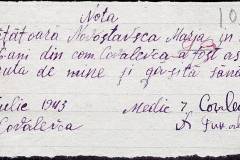 Nota
tățoară Novostavsca Marja in
ani din com. Covalevca a fost as
de mine și găsită
iulie 1943 Medic 7. Covale
Covalevca
10